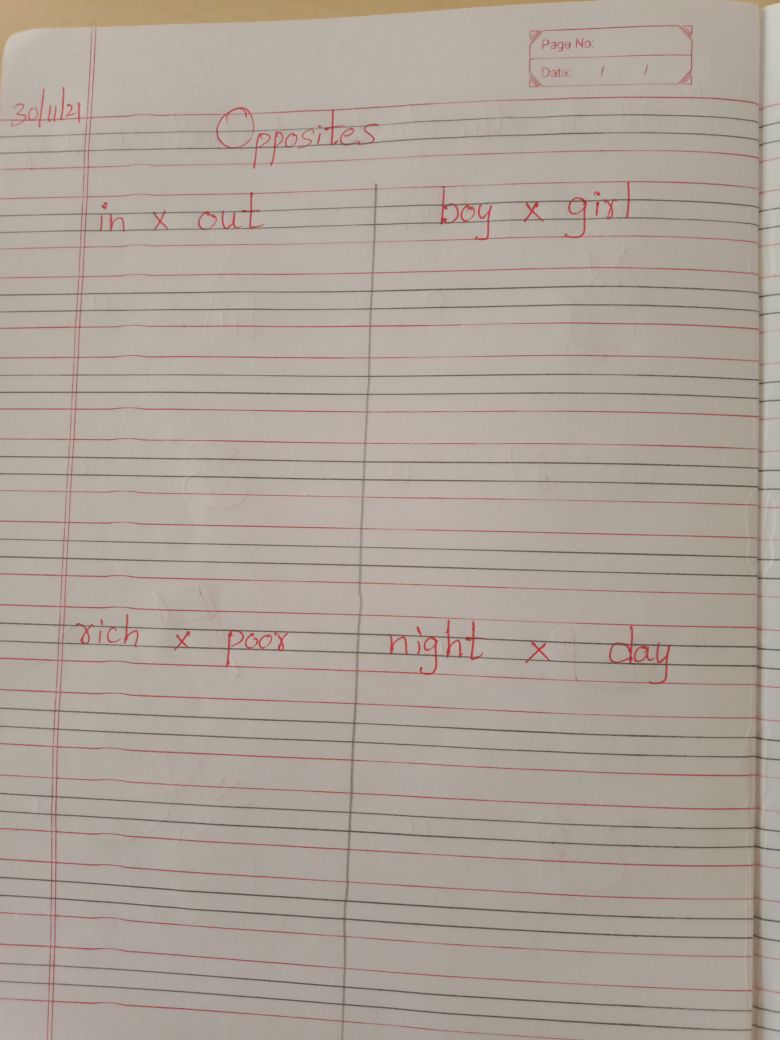 Page No:
Date: / /
30/11/21
Opposites
in x out
boy x girl
rich x poor
night x day